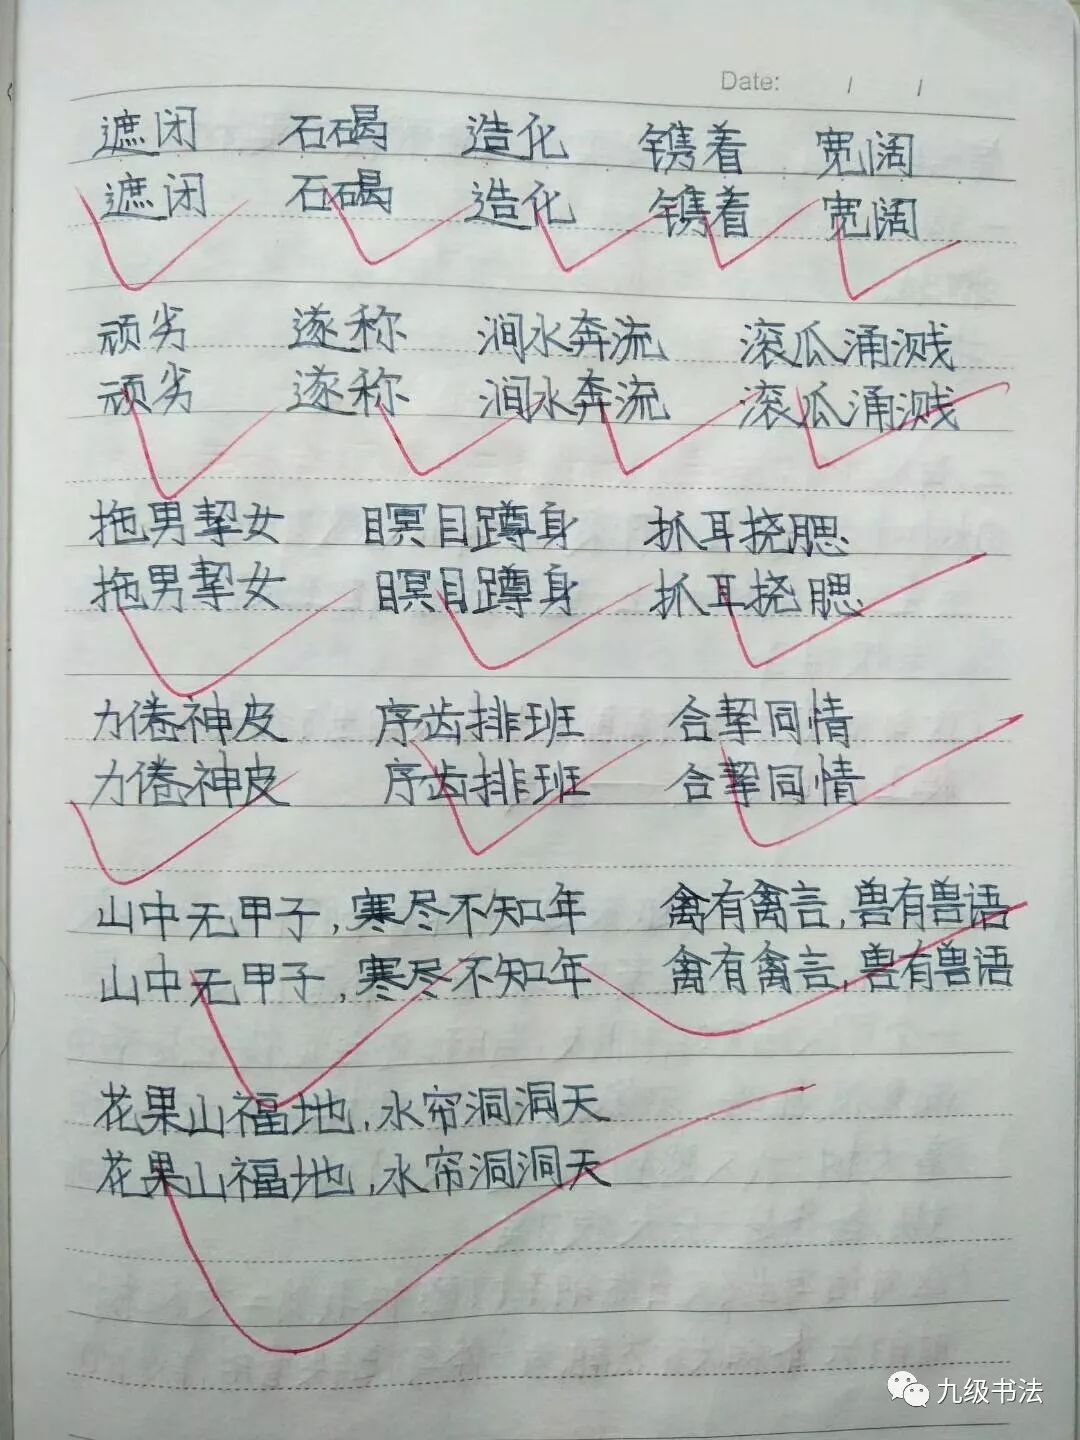 Date: / /
遮闭 石碣 造化 镌着 宽阔
遮闭 石碣 造化 镌着 宽阔
顽劣 遂称 涧水奔流 滚瓜涌溅
顽劣 遂称 涧水奔流 滚瓜涌溅
拖男挈女 瞑目蹲身 抓耳挠腮
拖男挈女 瞑目蹲身 抓耳挠腮
力倦神皮 序齿排班 合挈同情
力倦神皮 序齿排班 合挈同情
山中无甲子,寒尽不知年 禽有禽言,兽有兽语
山中无甲子,寒尽不知年 禽有禽言,兽有兽语
花果山福地,水帘洞洞天
花果山福地,水帘洞洞天
九级书法